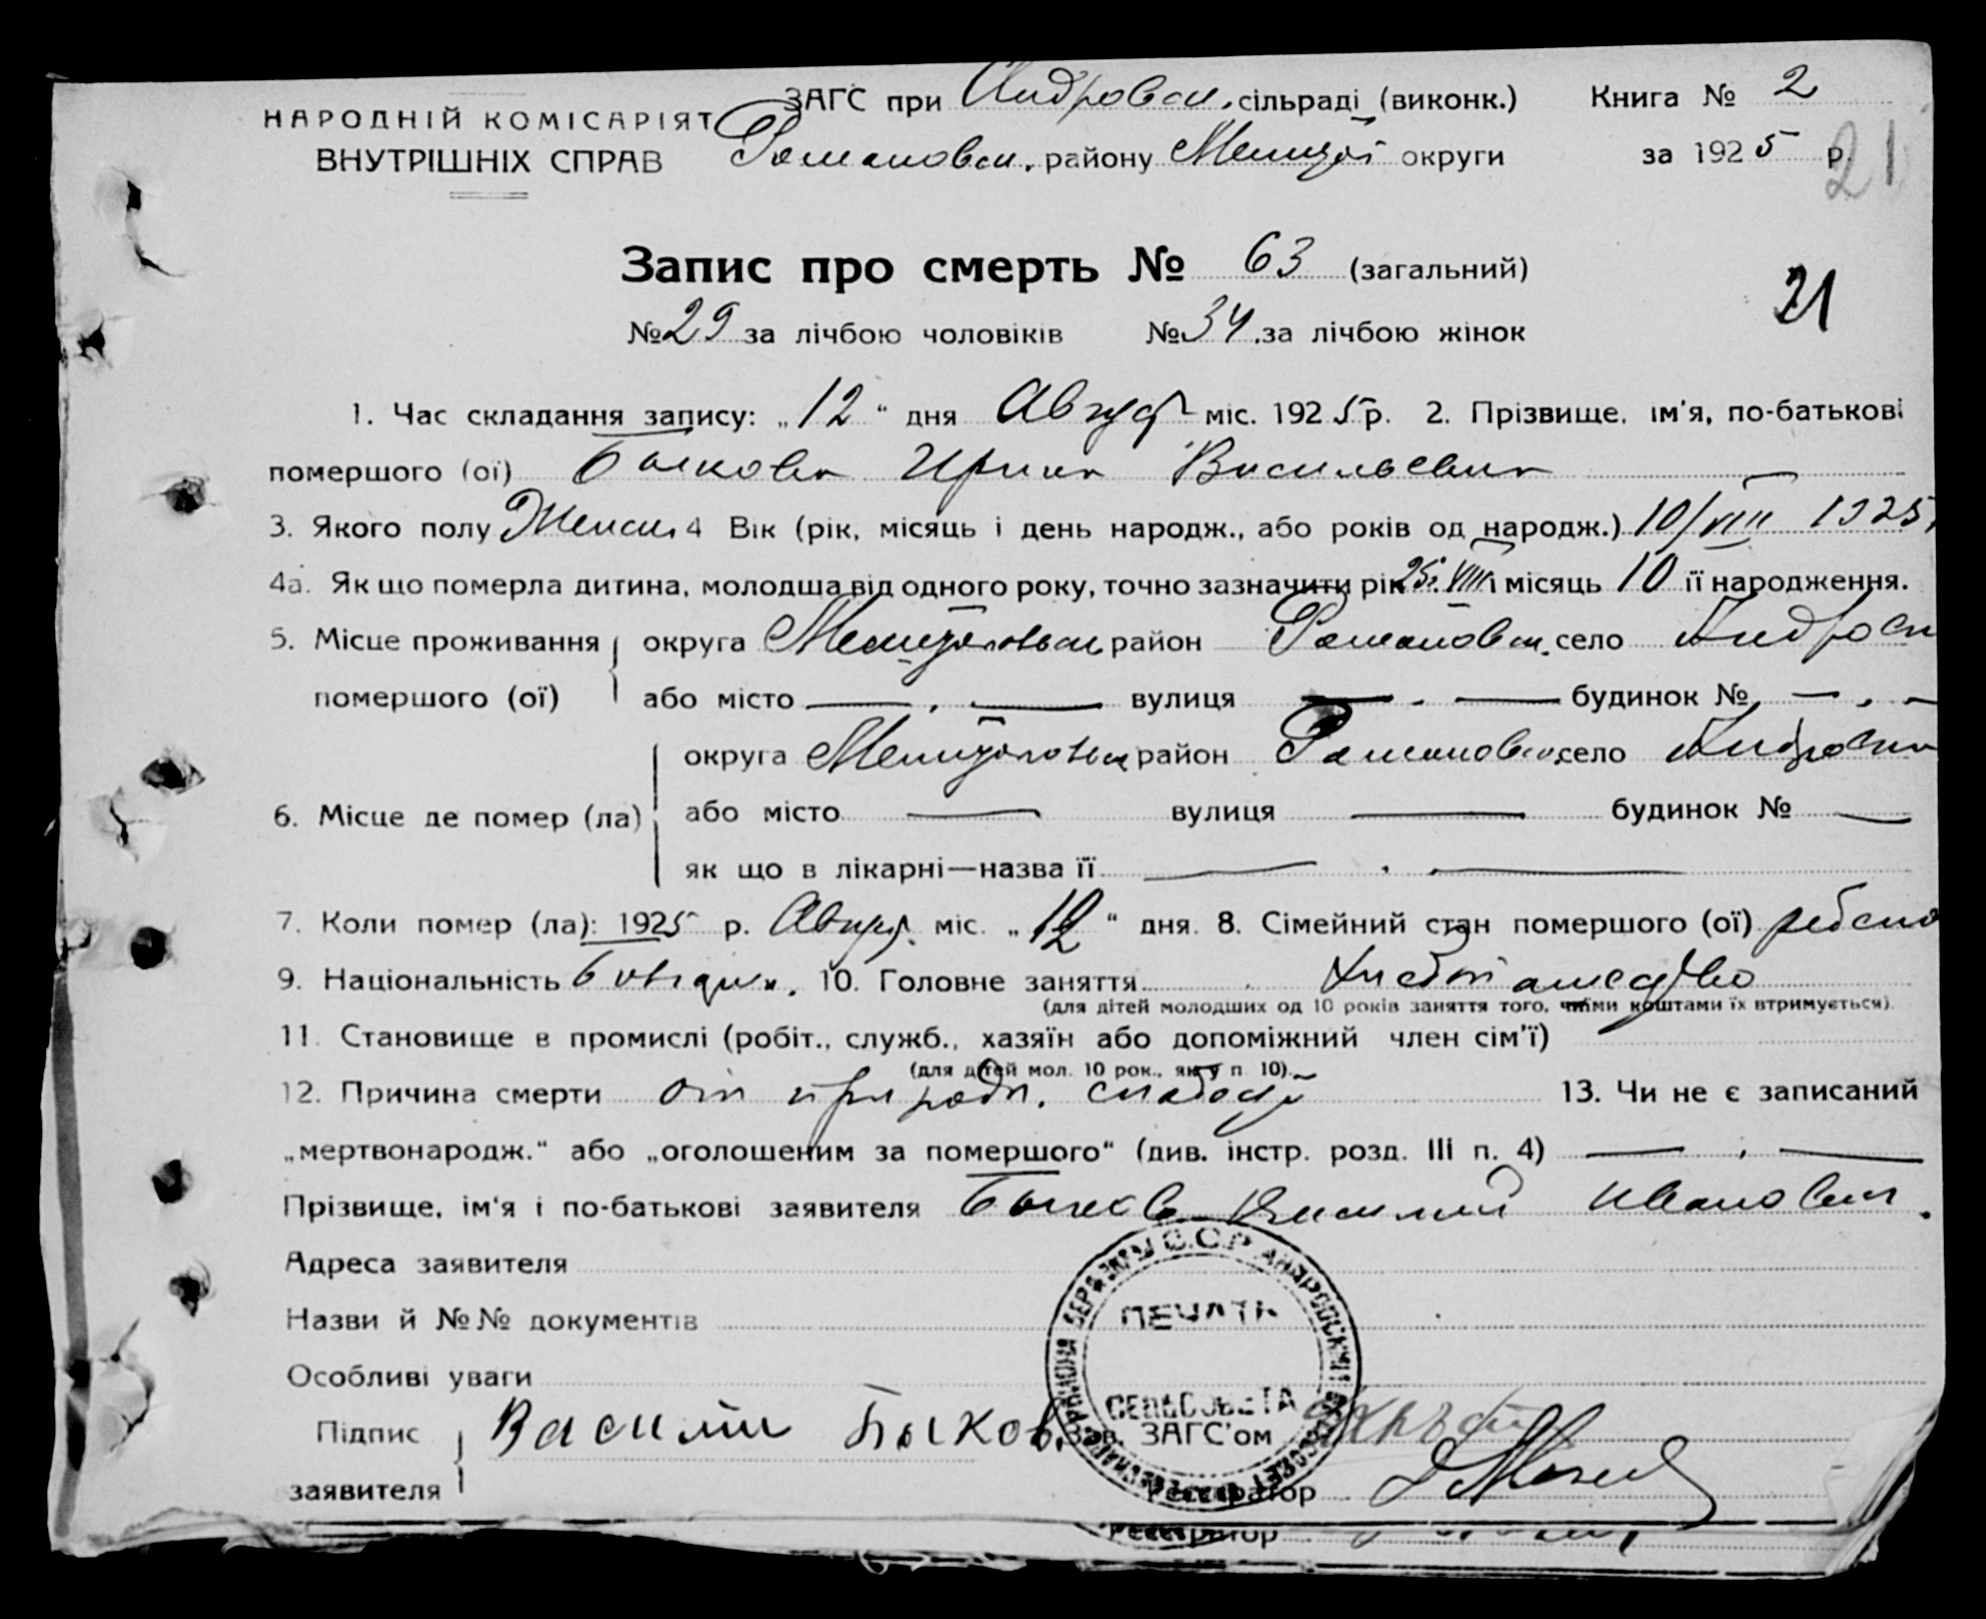 НАРОДНІЙ КОМІСАРІЯТ
ВНУТРІШНІХ СПРАВ
ЗАГС при Андровск. сільраді (виконк.) Книга № 2
Романовск. району Мелитоп округи за 1925 р.
21
Запис про смерть № 63 (загальний)
21
№ 29 за лічбою чоловіків № 34 за лічбою жінок
1. Час складання запису: „12" дня Август міс. 1925 р. 2. Прізвище, ім'я, по-батькові
помершого (ої) Быкова Ирина Васильевна
3. Якого полу Женск. 4 Вік (рік, місяць і день народж., або років од народж.) 10/VIII 1925
4а. Як що померла дитина, молодша від одного року, точно зазначити рік 25 г. VIII і місяць 10 її народження.
5. Місце проживання округа Мелитопольск район Романовск. село Андровк
помершого (ої) або місто — . — вулиця — . — будинок № — . —
округа Мелитопольск район Романовск. село Андровка
6. Місце де помер (ла) або місто — вулиця — будинок № —
як що в лікарні—назва її — . —
7. Коли помер (ла): 1925 р. Август. міс. „12" дня. 8. Сімейний стан помершого (ої)
9. Національність 10. Головне заняття Хлебопашество
(для дітей молодших од 10 років заняття того, чиїми коштами їх втримується).
11. Становище в промислі (робіт., служб., хазяїн або допоміжний член сім'ї)
(для дітей мол. 10 рок., як у п. 10).
12. Причина смерти от природн. слабост 13. Чи не є записаний
„мертвонародж." або „оголошеним за помершого" (див. інстр. розд. III п. 4) — . —
Прізвище, ім'я і по-батькові заявителя Быков Василий Иванович.
Адреса заявителя
Назви й №№ документів
Особливі уваги
Підпис заявителя Василий Быков.
ПЕЧАТЬ
СЕЛЬСОВЕТА
Зав. ЗАГС'ом
Регстратор
Регстратор